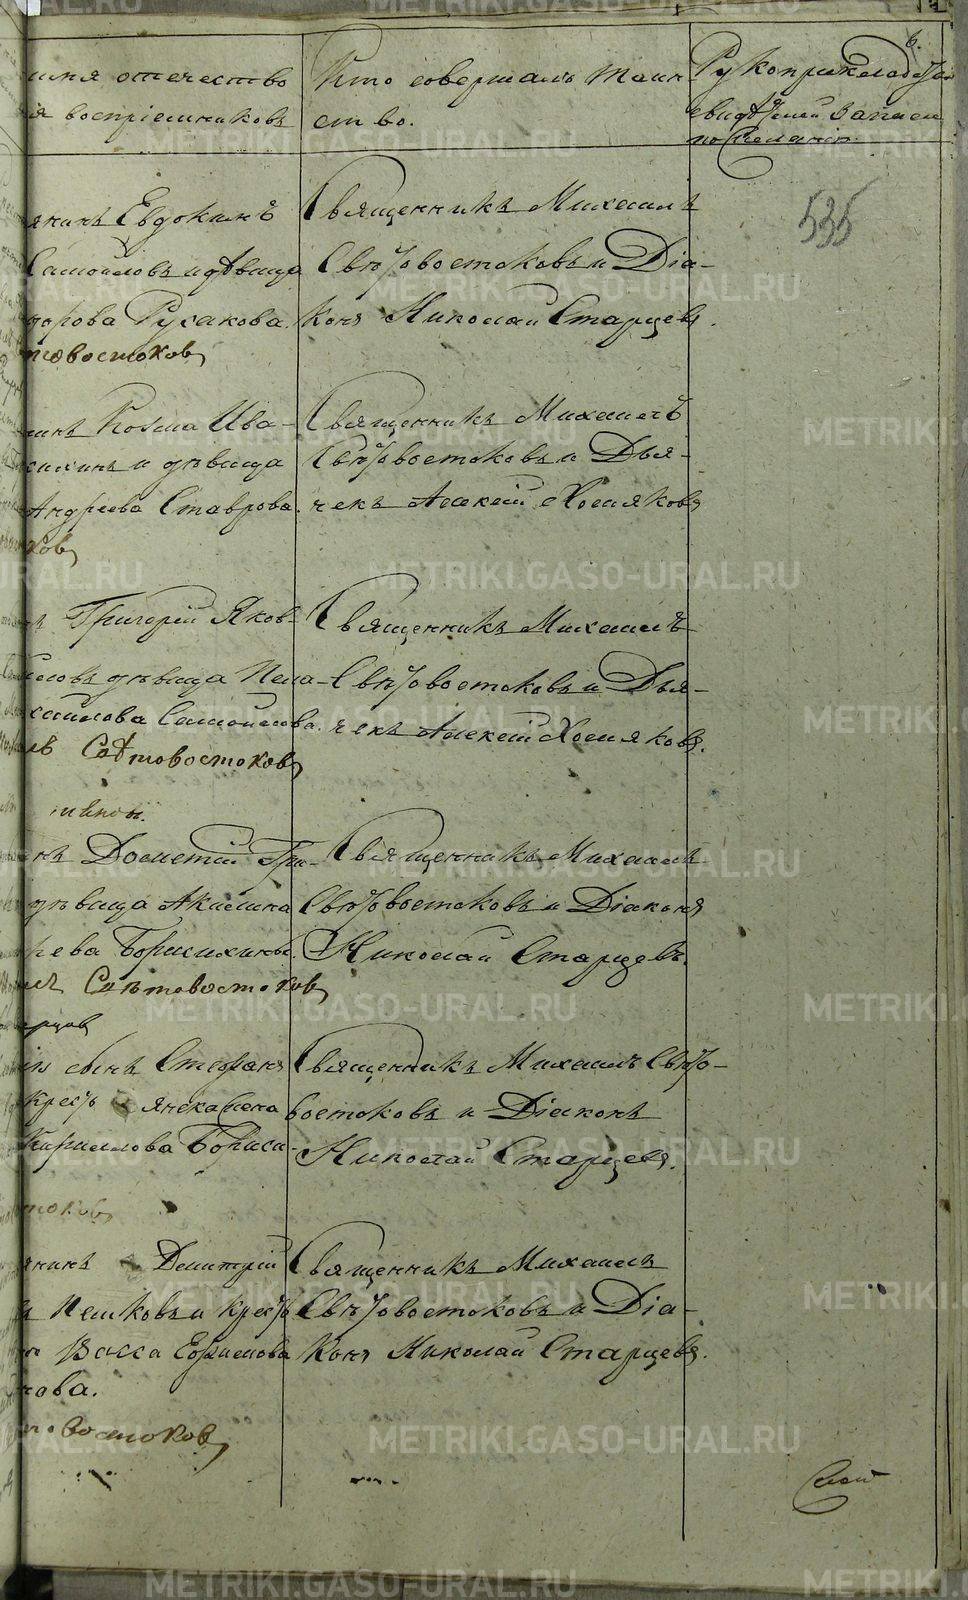 6.
имя отечество
воспріемниковъ
Кто совершалъ таин
ство.
Рукоприкладство
свидѣтелей записи
по желанію.
535
янинъ Евдокимъ
Самойловъ и дѣвица
дорова Русакова.
товостоков
Священникъ Михаилъ
Свѣтовостоковъ и Діа-
конъ Николай Старцевъ.
нинъ Козма Ива-
и дѣвица
Андреева Ставрова.
ков
Священникъ Михаилъ
Свѣтовостоковъ и Дья-
чекъ Алексій Хомяковъ
Григорій Яков-
дѣвица Пела-
Самойлова.
Свѣтовостоков
Священникъ Михаилъ
Свѣтовостоковъ и Дья-
чекъ Алексій Хомяковъ.
нъ Дометій Гри-
дѣвица Акилина
Борисихины.
Свѣтовостоков
Священникъ Михаилъ
Свѣтовостоковъ и Діаконъ
Николай Старцевъ.
сынъ Стефанъ
Кирилова Бориси-
токов
Священникъ Михаилъ Свѣто-
востоковъ и Діаконъ
Николай Старцевъ.
янинъ Димитрій
Пешковъ и крест
Васса Ефимова
нова.
товостоков
Священникъ Михаилъ
Свѣтовостоковъ и Діа-
конъ Николай Старцевъ.
METRIKI.GASO-URAL.RU